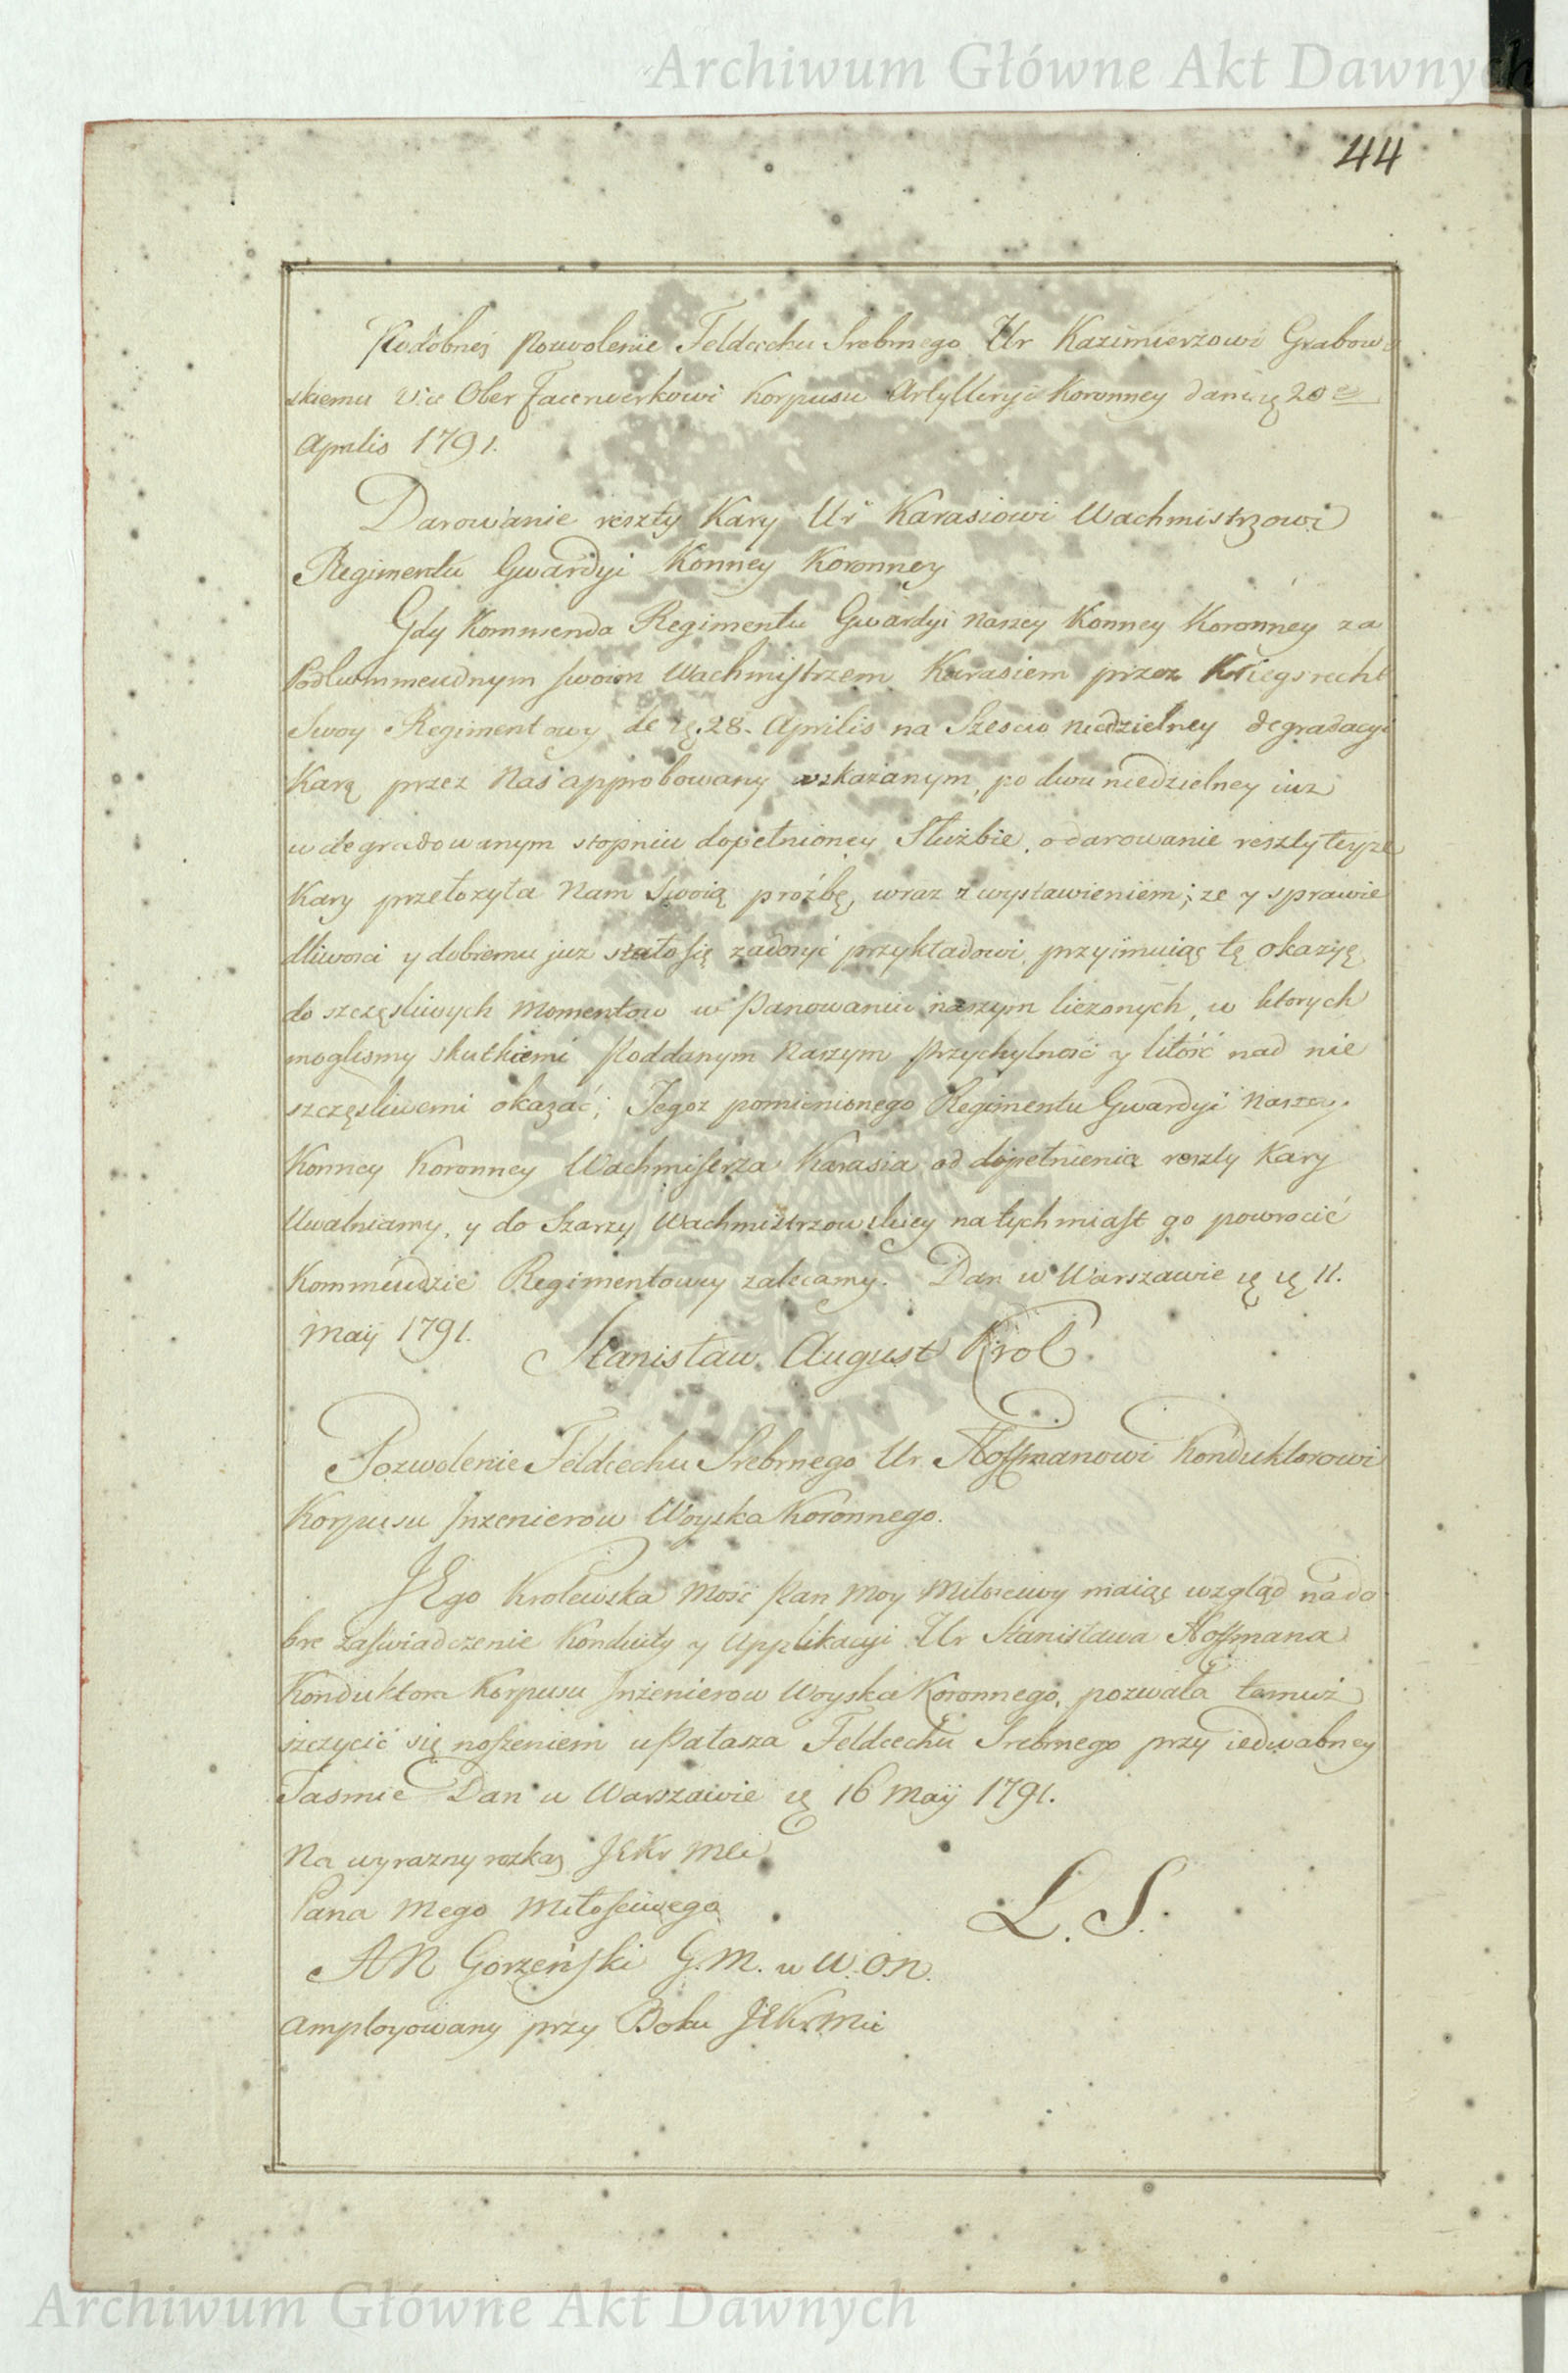 Archiwum Główne Akt Dawnych
44
Podobneż Pozwolenie Feldcechu Srebrnego Ur Kazimierzowi Grabow=
skiemu Vice Ober Faierwerkowi Korpusu Artylleryi Koronney dane 20
Aprilis 1791.
Darowanie reszty Kary Ur Karasiowi Wachmistrzowi
Regimentu Gwardyi Konney Koronney
Gdy Kommenda Regimentu Gwardyi Naszey Konney Koronney za
Podkommendnym swoim Wachmistrzem Karasiem przez Kriegsrecht
Swoy Regimentowy de 28. Aprilis na Szescio niedzielney degradacyi
Karę przez Nas approbowany wskazanym, po dwu niedzielney iuz
w degradowanym stopniu dopełnioney Służbie, o darowanie reszty teyze
Kary przełozyła Nam Swoią próźbę, wraz z wystawieniem; ze y sprawie
dliwosci y dobremu juz stało się zadosyć przykładowi, przyimuiąc tę okazyę
do szczęsliwych Momentow w Panowaniu naszym liczonych, w ktorych
moglismy skutkiemi Poddanym Naszym Przychylność y litość nad nie
szczęsliwemi okazać; Tegoz pomienionego Regimentu Gwardyi Naszey
Konney Koronney Wachmistrza Karasia od dopełnienia reszty Kary
Uwalniamy, y do Szarzy Wachmistrzowskiey natychmiast go powrocić
Kommendzie Regimentowey zalecamy. Dan w Warszawie 11.
Maij 1791.
Stanisław August Krol
Pozwolenie Feldcechu Srebrnego Ur. Hoffmanowi Konduktorowi
Korpusu Inzenierow Woyska Koronnego.
JEgo Krolewska Mość Pan Moy Miłosciwy maiąc wzgląd na do
bre zaświadczenie Konduity y Applikacyi Ur Stanisława Hoffmana
Konduktora Korpusu Inżenierow Woyska Koronnego, pozwala temuż
szczycić się noszeniem u Pałasza Feldcechu Srebrnego przy iedwabney
Tasmie Dan w Warszawie 16 Maij 1791.
Na wyrazny rozkaz JEKr Mci
Pana Mego Miłosciwego
L. S.
AN Gorzeński G. M. w W. O. N.
Amployowany przy Boku JEKrMci
Archiwum Główne Akt Dawnych